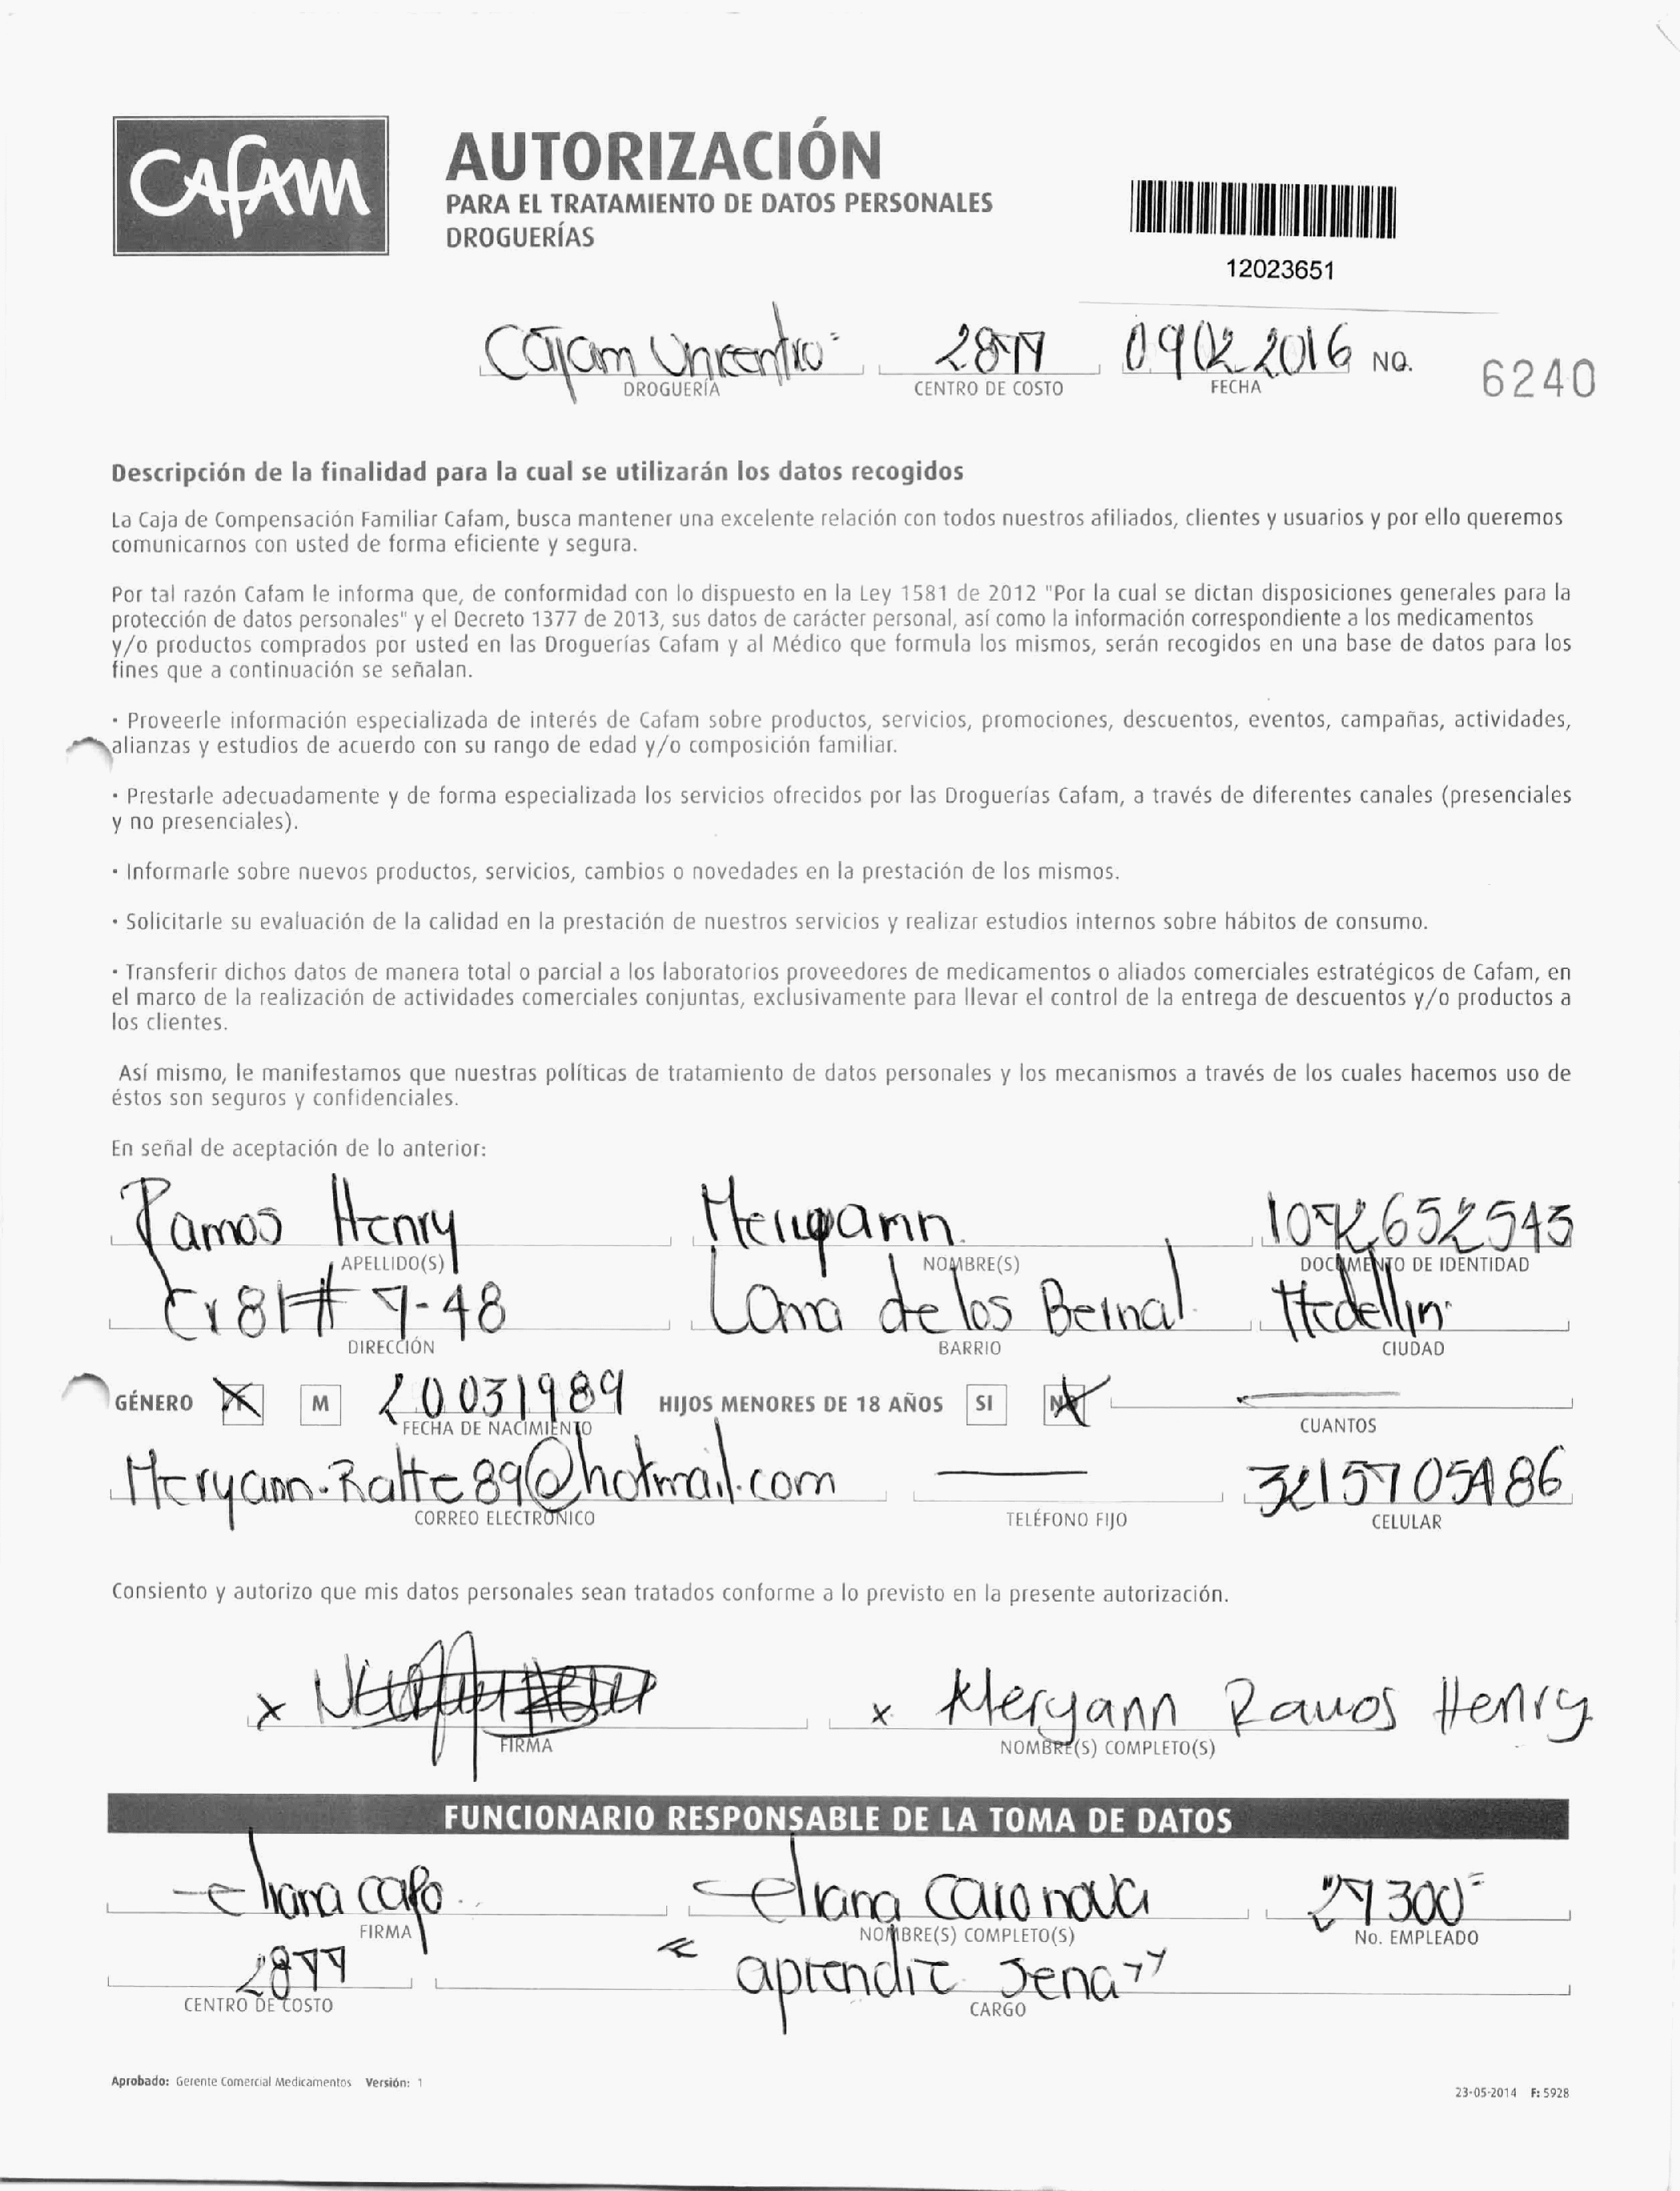 CAFAM
AUTORIZACIÓN
PARA EL TRATAMIENTO DE DATOS PERSONALES
DROGUERÍAS
12023651
Cafam Unicentro 2877 09 02 2016 NO. 6240
DROGUERÍA CENTRO DE COSTO FECHA
Descripción de la finalidad para la cual se utilizarán los datos recogidos
La Caja de Compensación Familiar Cafam, busca mantener una excelente relación con todos nuestros afiliados, clientes y usuarios y por ello queremos
comunicarnos con usted de forma eficiente y segura.
Por tal razón Cafam le informa que, de conformidad con lo dispuesto en la Ley 1581 de 2012 "Por la cual se dictan disposiciones generales para la
protección de datos personales" y el Decreto 1377 de 2013, sus datos de carácter personal, así como la información correspondiente a los medicamentos
y/o productos comprados por usted en las Droguerías Cafam y al Médico que formula los mismos, serán recogidos en una base de datos para los
fines que a continuación se señalan.
· Proveerle información especializada de interés de Cafam sobre productos, servicios, promociones, descuentos, eventos, campañas, actividades,
alianzas y estudios de acuerdo con su rango de edad y/o composición familiar.
· Prestarle adecuadamente y de forma especializada los servicios ofrecidos por las Droguerías Cafam, a través de diferentes canales (presenciales
y no presenciales).
· Informarle sobre nuevos productos, servicios, cambios o novedades en la prestación de los mismos.
· Solicitarle su evaluación de la calidad en la prestación de nuestros servicios y realizar estudios internos sobre hábitos de consumo.
· Transferir dichos datos de manera total o parcial a los laboratorios proveedores de medicamentos o aliados comerciales estratégicos de Cafam, en
el marco de la realización de actividades comerciales conjuntas, exclusivamente para llevar el control de la entrega de descuentos y/o productos a
los clientes.
Así mismo, le manifestamos que nuestras políticas de tratamiento de datos personales y los mecanismos a través de los cuales hacemos uso de
éstos son seguros y confidenciales.
En señal de aceptación de lo anterior:
Ramos Henry Meryann 1072652543
APELLIDO(S) NOMBRE(S) DOCUMENTO DE IDENTIDAD
Cr 81 # 7-48 Loma de los Bernal Medellin
DIRECCIÓN BARRIO CIUDAD
GÉNERO M 20031989 HIJOS MENORES DE 18 AÑOS SI NO
FECHA DE NACIMIENTO CUANTOS
Meryann.Ratte89@hotmail.com 3215705486
CORREO ELECTRÓNICO TELÉFONO FIJO CELULAR
Consiento y autorizo que mis datos personales sean tratados conforme a lo previsto en la presente autorización.
x x Meryann Ramos Henry
FIRMA NOMBRE(S) COMPLETO(S)
FUNCIONARIO RESPONSABLE DE LA TOMA DE DATOS
eliana caro eliana caro nova 27300
FIRMA NOMBRE(S) COMPLETO(S) No. EMPLEADO
2877 "aprendiz Sena"
CENTRO DE COSTO CARGO
Aprobado: Gerente Comercial Medicamentos Versión: 1
23-05-2014 F: 5928